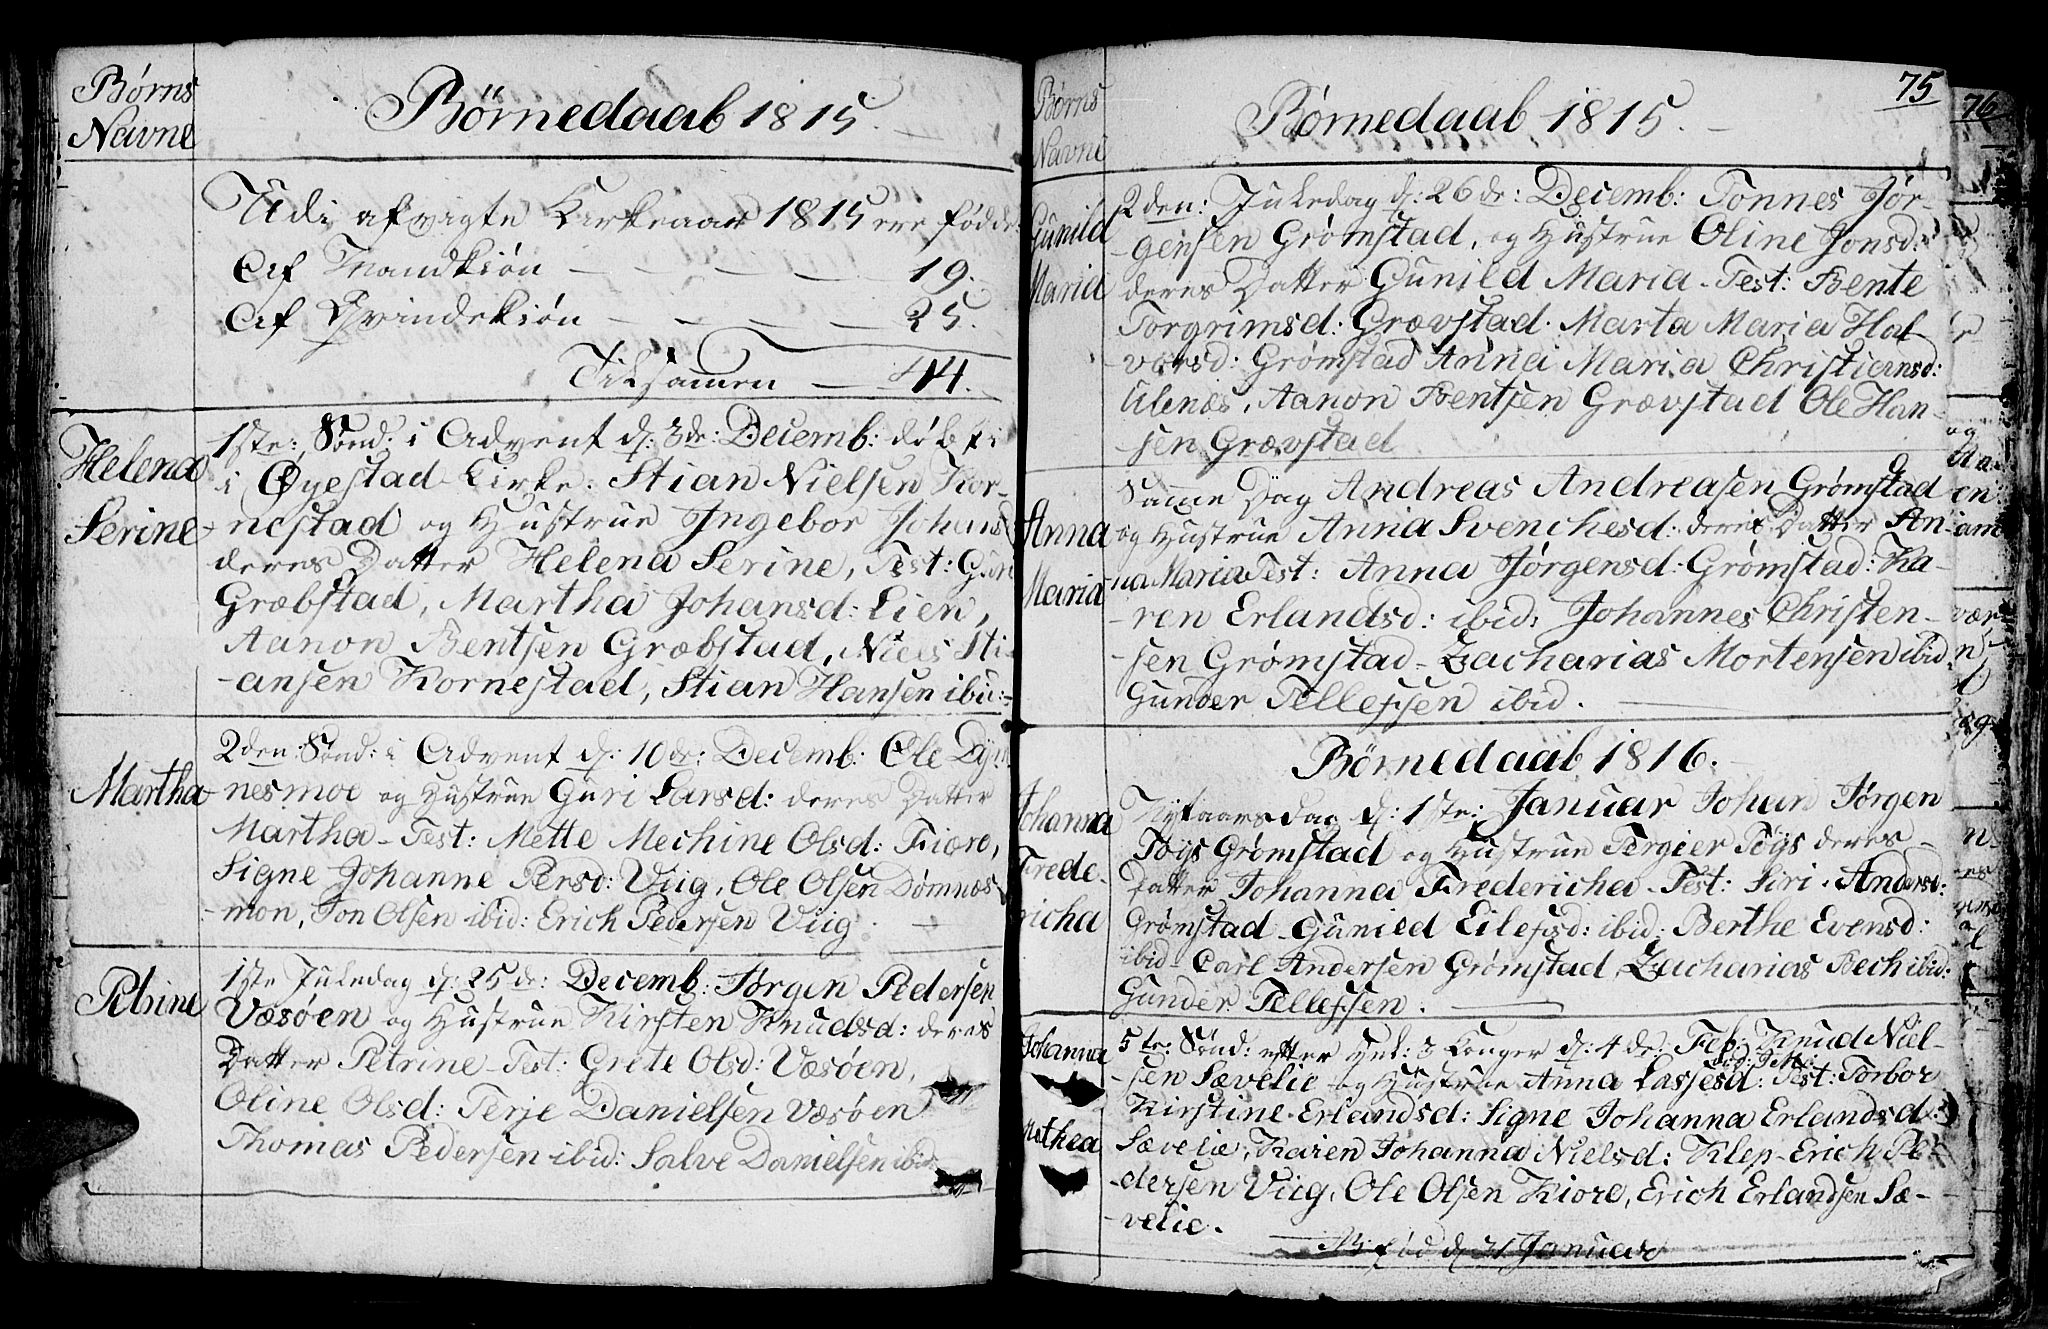 Børns
Navne
Börnedaab 1815.
Udi afvigte Kirkeaar 1815 ere födde
Af Mandkiön — 19.
Af Qvindekiön — 25.
Tilsamen — 44.
Helena
Serine
1ste: Sønd: i Advent d: 3de: Decemb: döbt i
i Øyestad Kirke: Stian Nielsen Kor-
nestad og Hustrue Ingebor Johans
deres Datter Helena Serine, Test: Gun
Græbstad, Martha Johansd: Lien,
Aanon Bentsen Græbstad, Niels Sti-
-ansen Kornestad, Stian Hansen ibid:
Martha
2den: Sønd: i Advent d: 10de: Decemb: Ole Dyn
nesmoe og Hustrue Guri Larsd: deres Datter
Martha - Test: Mette Mechine Olsd: Fiære,
Signe Johanne Persd: Viig, Ole Olsen Dømnes-
-mon, Jon Olsen ibid: Erich Pedersen Viig.
Petrine
1ste Juledag d: 25de: Decemb: Jørgen Pedersen
Væsøen og Hustrue Kirsten Knudsd: deres
Datter Petrine - Test: Grete Olsd: Væsøen,
Oline Olsd: Terje Danielsen Væsøen
Thomas Pedersen ibid: Salve Danielsen ibid:
75
Børns
Navne
Børnedaab 1815.
Gunild
Maria
2den: Juledag d: 26de: Decemb: Tonnes Jør-
-gensen Grømstad, og Hustrue Oline Jonsd:
deres Datter Gunild Maria - Test: Bente
Torgrimsd: Grævstad. Marta Maria Hal-
vorsd: Grømstad Anna Maria Christiansd:
Ulenæs, Aanon Bentsen Grævstad Ole Han-
-sen Grævstad
Anna
Maria
Samme Dag Andreas Andreasen Grømstad
og Hustrue Anna Svenchesd: deres Datter An-
na Maria Test: Anna Jørgensd: Grømstad: Ka-
-ren Erlandsd: ibid: Johannes Christen-
-sen Grømstad - Zacharias Mortensen ibid
Gunder Tellefsen ibid.
Børnedaab 1816.
Johanna
Frede-
richa
Nytaarsdag d: 1ste: Januar Johan Jørgen
Töys Grømstad og Hustrue Tergier Töys deres
Datter Johanna Frederica - Test: Siri Andersd:
Grømstad - Gunild Eilefsd: ibid: Berthe Evensd:
ibid - Carl Andersen Grømstad, Zacharias Bech ibid:
Gunder Tellefsen.
Johanna
Mathea
5te: Sønd: efter Hel: 3 Konger d: 4de: Feb: Knud Niel-
-sen Sævelie og Hustrue Anna Lassesd: Test: Torbor
Kirstine Erlandsd: Signe Johanna Erlandsd:
Sævelie, Karen Johanna Nielsd: Klep - Erich Pe-
-dersen Viig, Ole Olsen Kiore, Erich Erlandsen Sæ-
-velie.
B: fød d 31 Januar
76